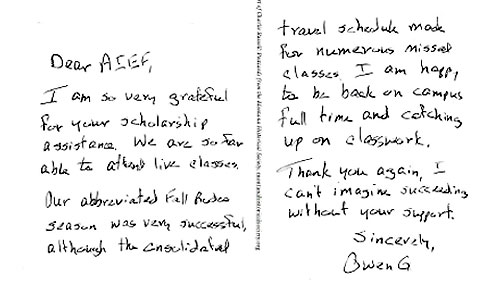 Dear AIEF,
I am so very grateful
for your scholarship
assistance. We are so far
able to attend live classes.
Our abbreviated Fall Rodeo
season was very successful,
although the consolidated
travel schedule made
for numerous missed
classes. I am happy
to be back on campus
full time and catching
up on classwork.
Thank you again, I
can't imagine succeeding
without your support.
Sincerely,
Owen G